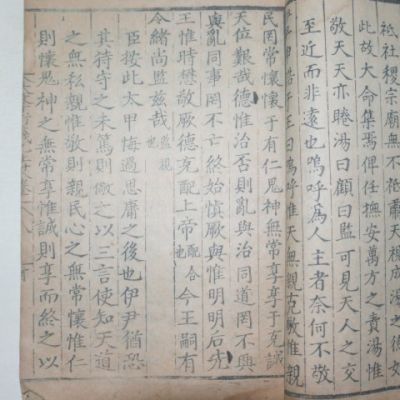 祗社稷宗廟無不祗肅天視成湯之德如
此故大命集焉俾任撫安萬方之責湯惟
敬天天亦睠湯曰顧曰監可見天人之交
至近而非遠也嗚呼為人主者奈何不敬
申誥于王曰嗚呼惟天無親克敬惟親
民罔常懷懷于有仁鬼神無常享享于克誠
天位艱哉德惟治否則亂與治同道罔不興
與亂同事罔不亡終始慎厥與惟明明后先
王惟時懋敬厥德克配上帝配合也今王嗣有
令緒尚監茲哉監視也
臣按此太甲悔過思庸之後也伊尹猶恐
其持守之未篤則儆之以三言使知天道
之無私親惟敬則親民心之無常懷惟仁
則懷鬼神之無常享惟誠則享而終之以